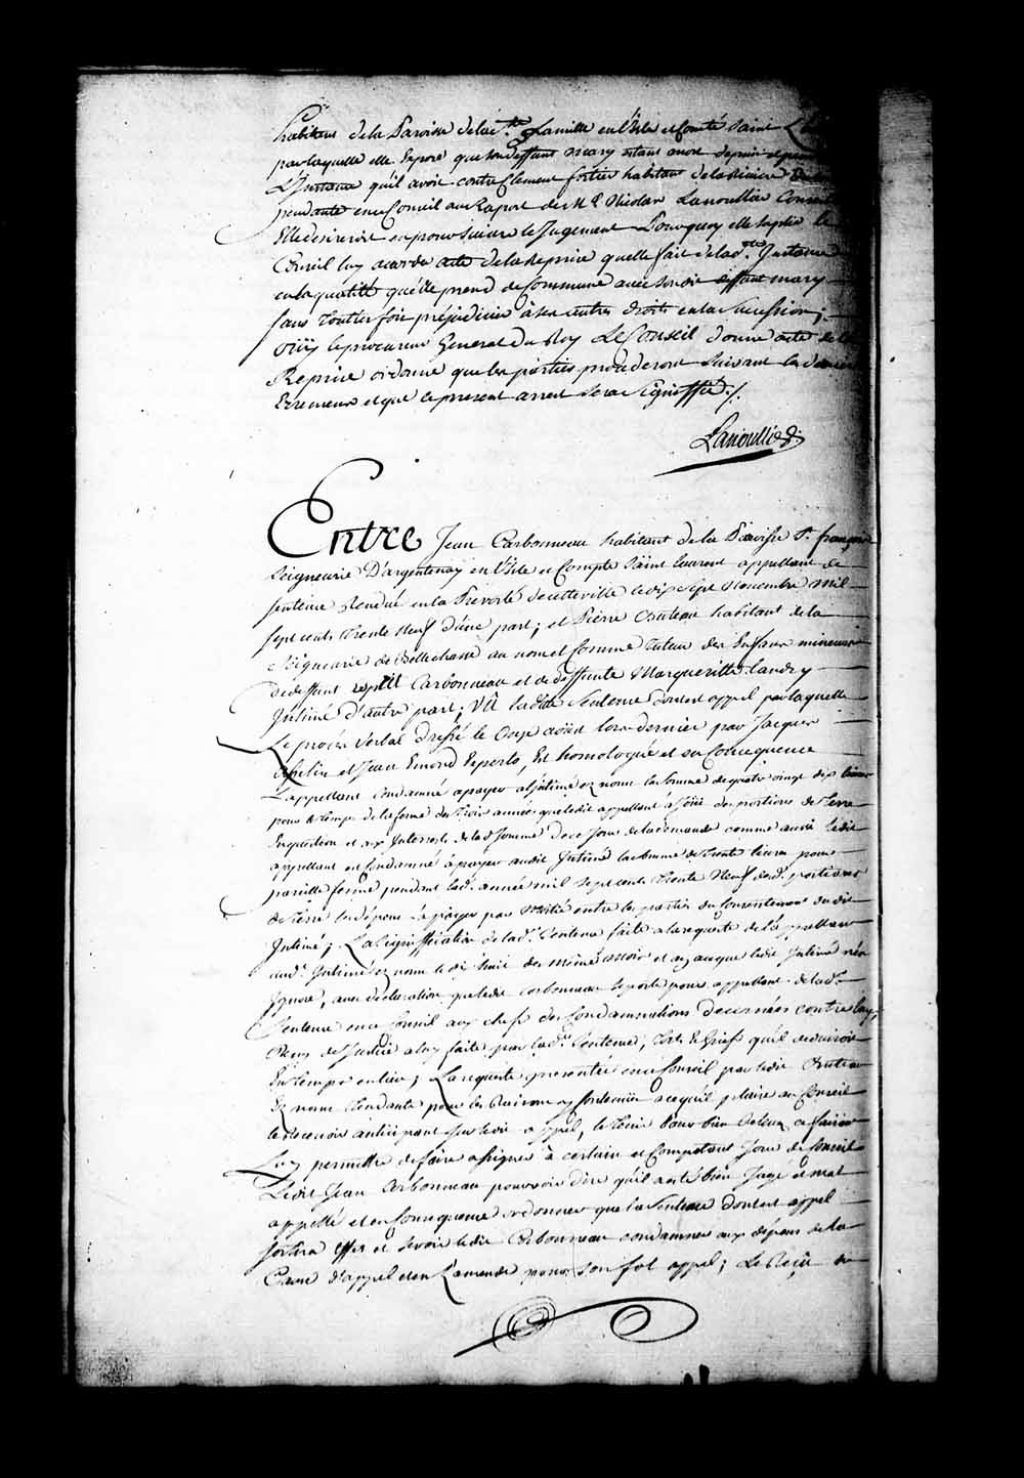 habitant de la Paroisse de la Ste famille en l'Isle et Comté Saint
par laquelle elle Expose que son deffunt mary etant mort depuis
L'Instance qu'il avoit contre Clement fortier habitant de la
pendante en ce Conseil au Raport de Me Nicolas Lanoullier
Elle desireroit en poursuivre le Jugement Pourquoy elle suplie le
Conseil luy accorder acte de la Reprise quelle fait de lad. te Instance
en la qualité quelle prend de Commune avec son dit deffunt mary
sans toutes fois préjudicier à ses autres droits en la succession;
Oüy le procureur General du Roy Le Conseil donne acte de la
Reprise ordonne que les parties procederont suivant les derniers
Erremens et que le present arrest sera signiffié ./.
Lanoullier
Entre Jean Carbonneau habitant de la Paroisse St. françois
Seigneurie D'argentenay en l'Isle et Compté Saint Laurent appellant de
sentence Rendüe en la Prevosté de cette ville le dix sept Novembre mil
sept cents trente Neuf d'une part; et Pierre habitant de la
Seigneurie de Bellechasse au nom et Comme Tuteur des Enfans mineurs
de deffunt Carbonneau et de deffunte Margueritte landry
Intimé d'autre part; Vû ladite Sentence dont est appel par laquelle
Le procés Verbal dressé le Onze aoust lors dernier par Jacques
et Jean Emond Experts, Est homologué et en Consequence
L'appellant Condamné apayer al'Intimé ez nom la somme de quatre vingt dix livres
pour le tems de la ferme des trois années que ledit appellant a Joüi des portions de Terre
En question et aux Interests de lad. somme de ce Jour de la demande comme aussi ledit
appellant est Condamné à payer audit Intimé la somme de trente livres pour
pareille ferme pendant lad. année mil sept cents trente Neuf desd. portions
de Terre les dépens à payer par moitié entre les parties du Consentement dudit
Intimé; La Signiffication de lad. Sentence faite ala requeste de l'appellant
aud. Intimé ez nom le dix huit des mêmes mois et an que ledit Intimé n'en
Ignore, avec declaration que ledit Carbonneau se porte pour appellant de lad.
Sentence en ce Conseil aux chefs des Condamnations decernées contre luy,
de Justice a luy faite par lad. te Sentence, Torts & Griefs qu'il deduiroit
En temps et lieu; La requeste presentée en ce Conseil par ledit
Ez nom tendante pour les Raisons y Contenües a ce qu'il plaise au Conseil
le Recevoir anticipant sur ledit appel, le tenir Pour bien Relevé, ce faisant
Luy permettre de faire assigner à certain et Competant Jour de Conseil
Ledit Jean Carbonneau pour voir dire qu'il a esté bien Jugé et mal
appellé et en Consequence ordonner que la sentence dont est appel
sortira effet et se voir ledit Carbonneau condamner aux dépens de la
Cause d'appel et en L'amende pour son fol appel; Le Reçû